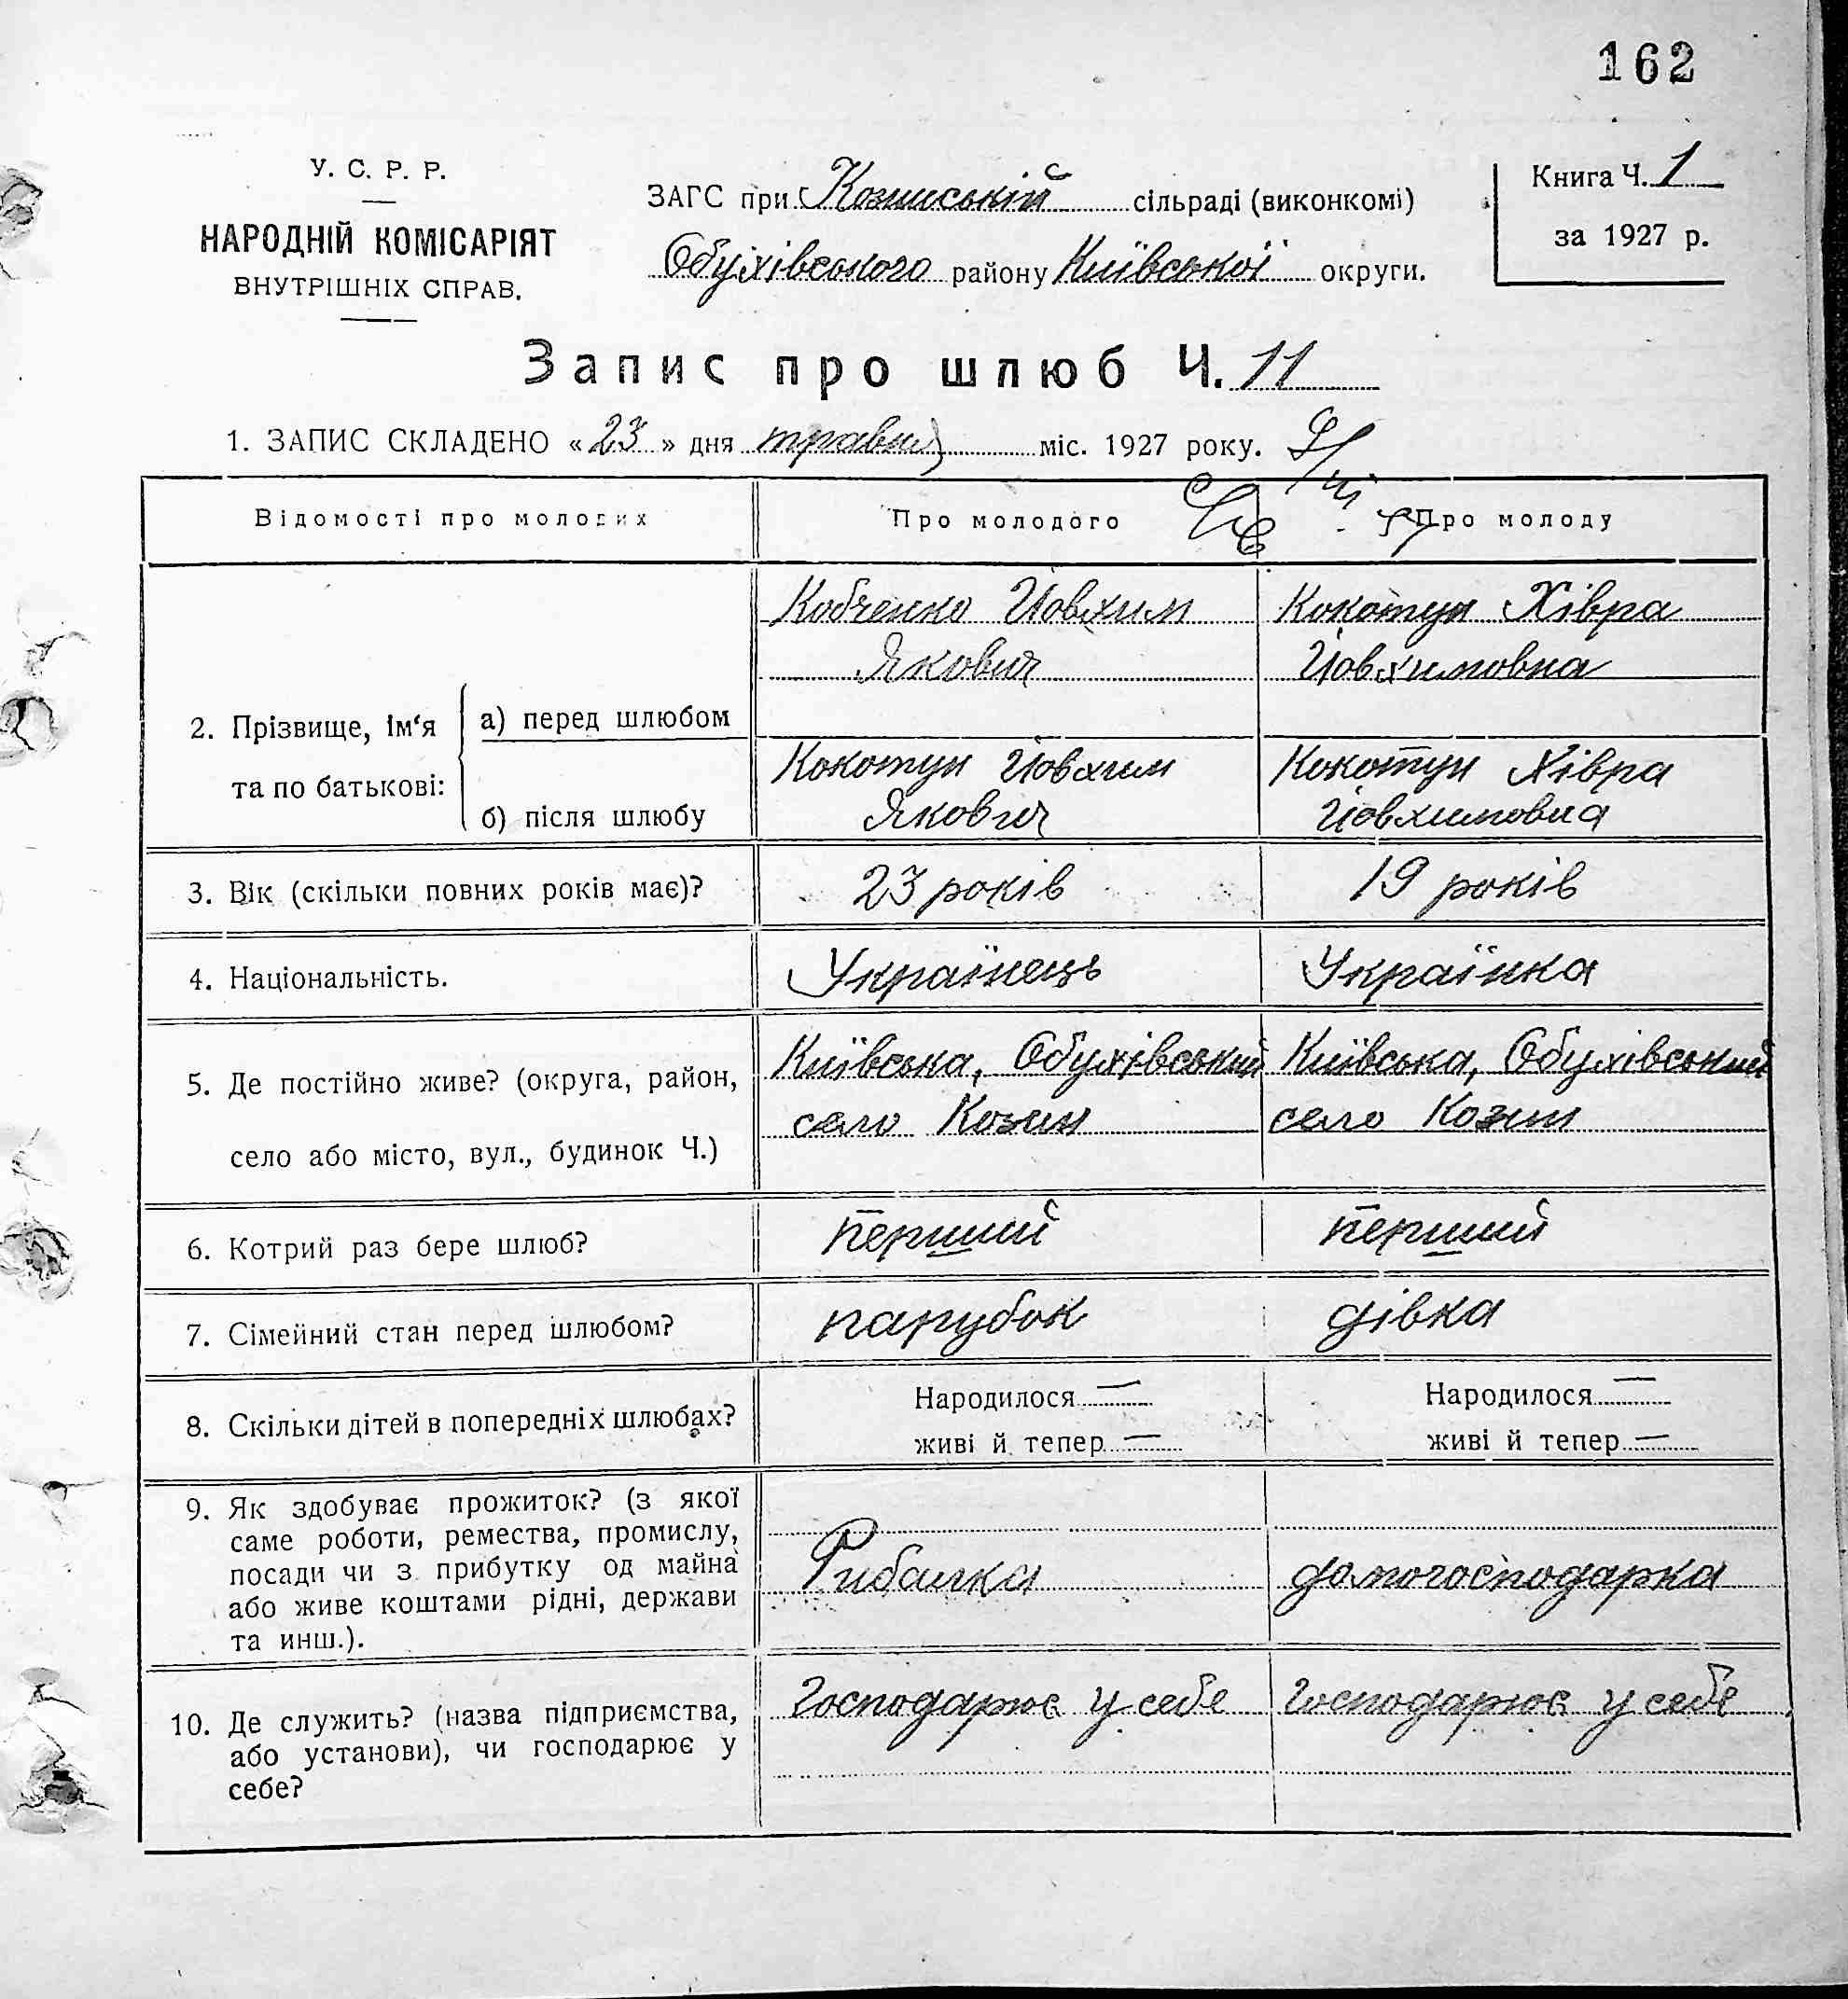 162
У. С. Р. Р.
НАРОДНІЙ КОМІСАРІЯТ
ВНУТРІШНІХ СПРАВ.
ЗАГС при Козинській сільраді (виконкомі)
Обухівського району Київської округи.
Книга Ч. 1
за 1927 р.
Запис про шлюб Ч. 11
1. ЗАПИС СКЛАДЕНО «23» дня травня міс. 1927 року.
Відомості про молодих
Про молодого
Про молоду
2. Прізвище, ім‘я
та по батькові:
а) перед шлюбом
Кобченко Йовхим
Якович
Кокотун Хівра
Йовхимовна
б) після шлюбу
Кокотун Йовхим
Якович
Кокотун Хівра
Йовхимовна
3. Вік (скільки повних років має)?
23 років
19 років
4. Національність.
Українець
Українка
5. Де постійно живе? (округа, район,
село або місто, вул., будинок Ч.)
Київська, Обухівський
село Козин
Київська, Обухівський
село Козин
6. Котрий раз бере шлюб?
перший
перший
7. Сімейний стан перед шлюбом?
парубок
дівка
8. Скільки дітей в попередніх шлюбах?
Народилося —
живі й тепер —
Народилося —
живі й тепер —
9. Як здобуває прожиток? (з якої
саме роботи, ремества, промислу,
посади чи з прибутку од майна
або живе коштами рідні, держави
та инш.).
Рибалка
домогосподарка
10. Де служить? (назва підприємства,
або установи), чи господарює у
себе?
Господарює у себе
Господарює у себе